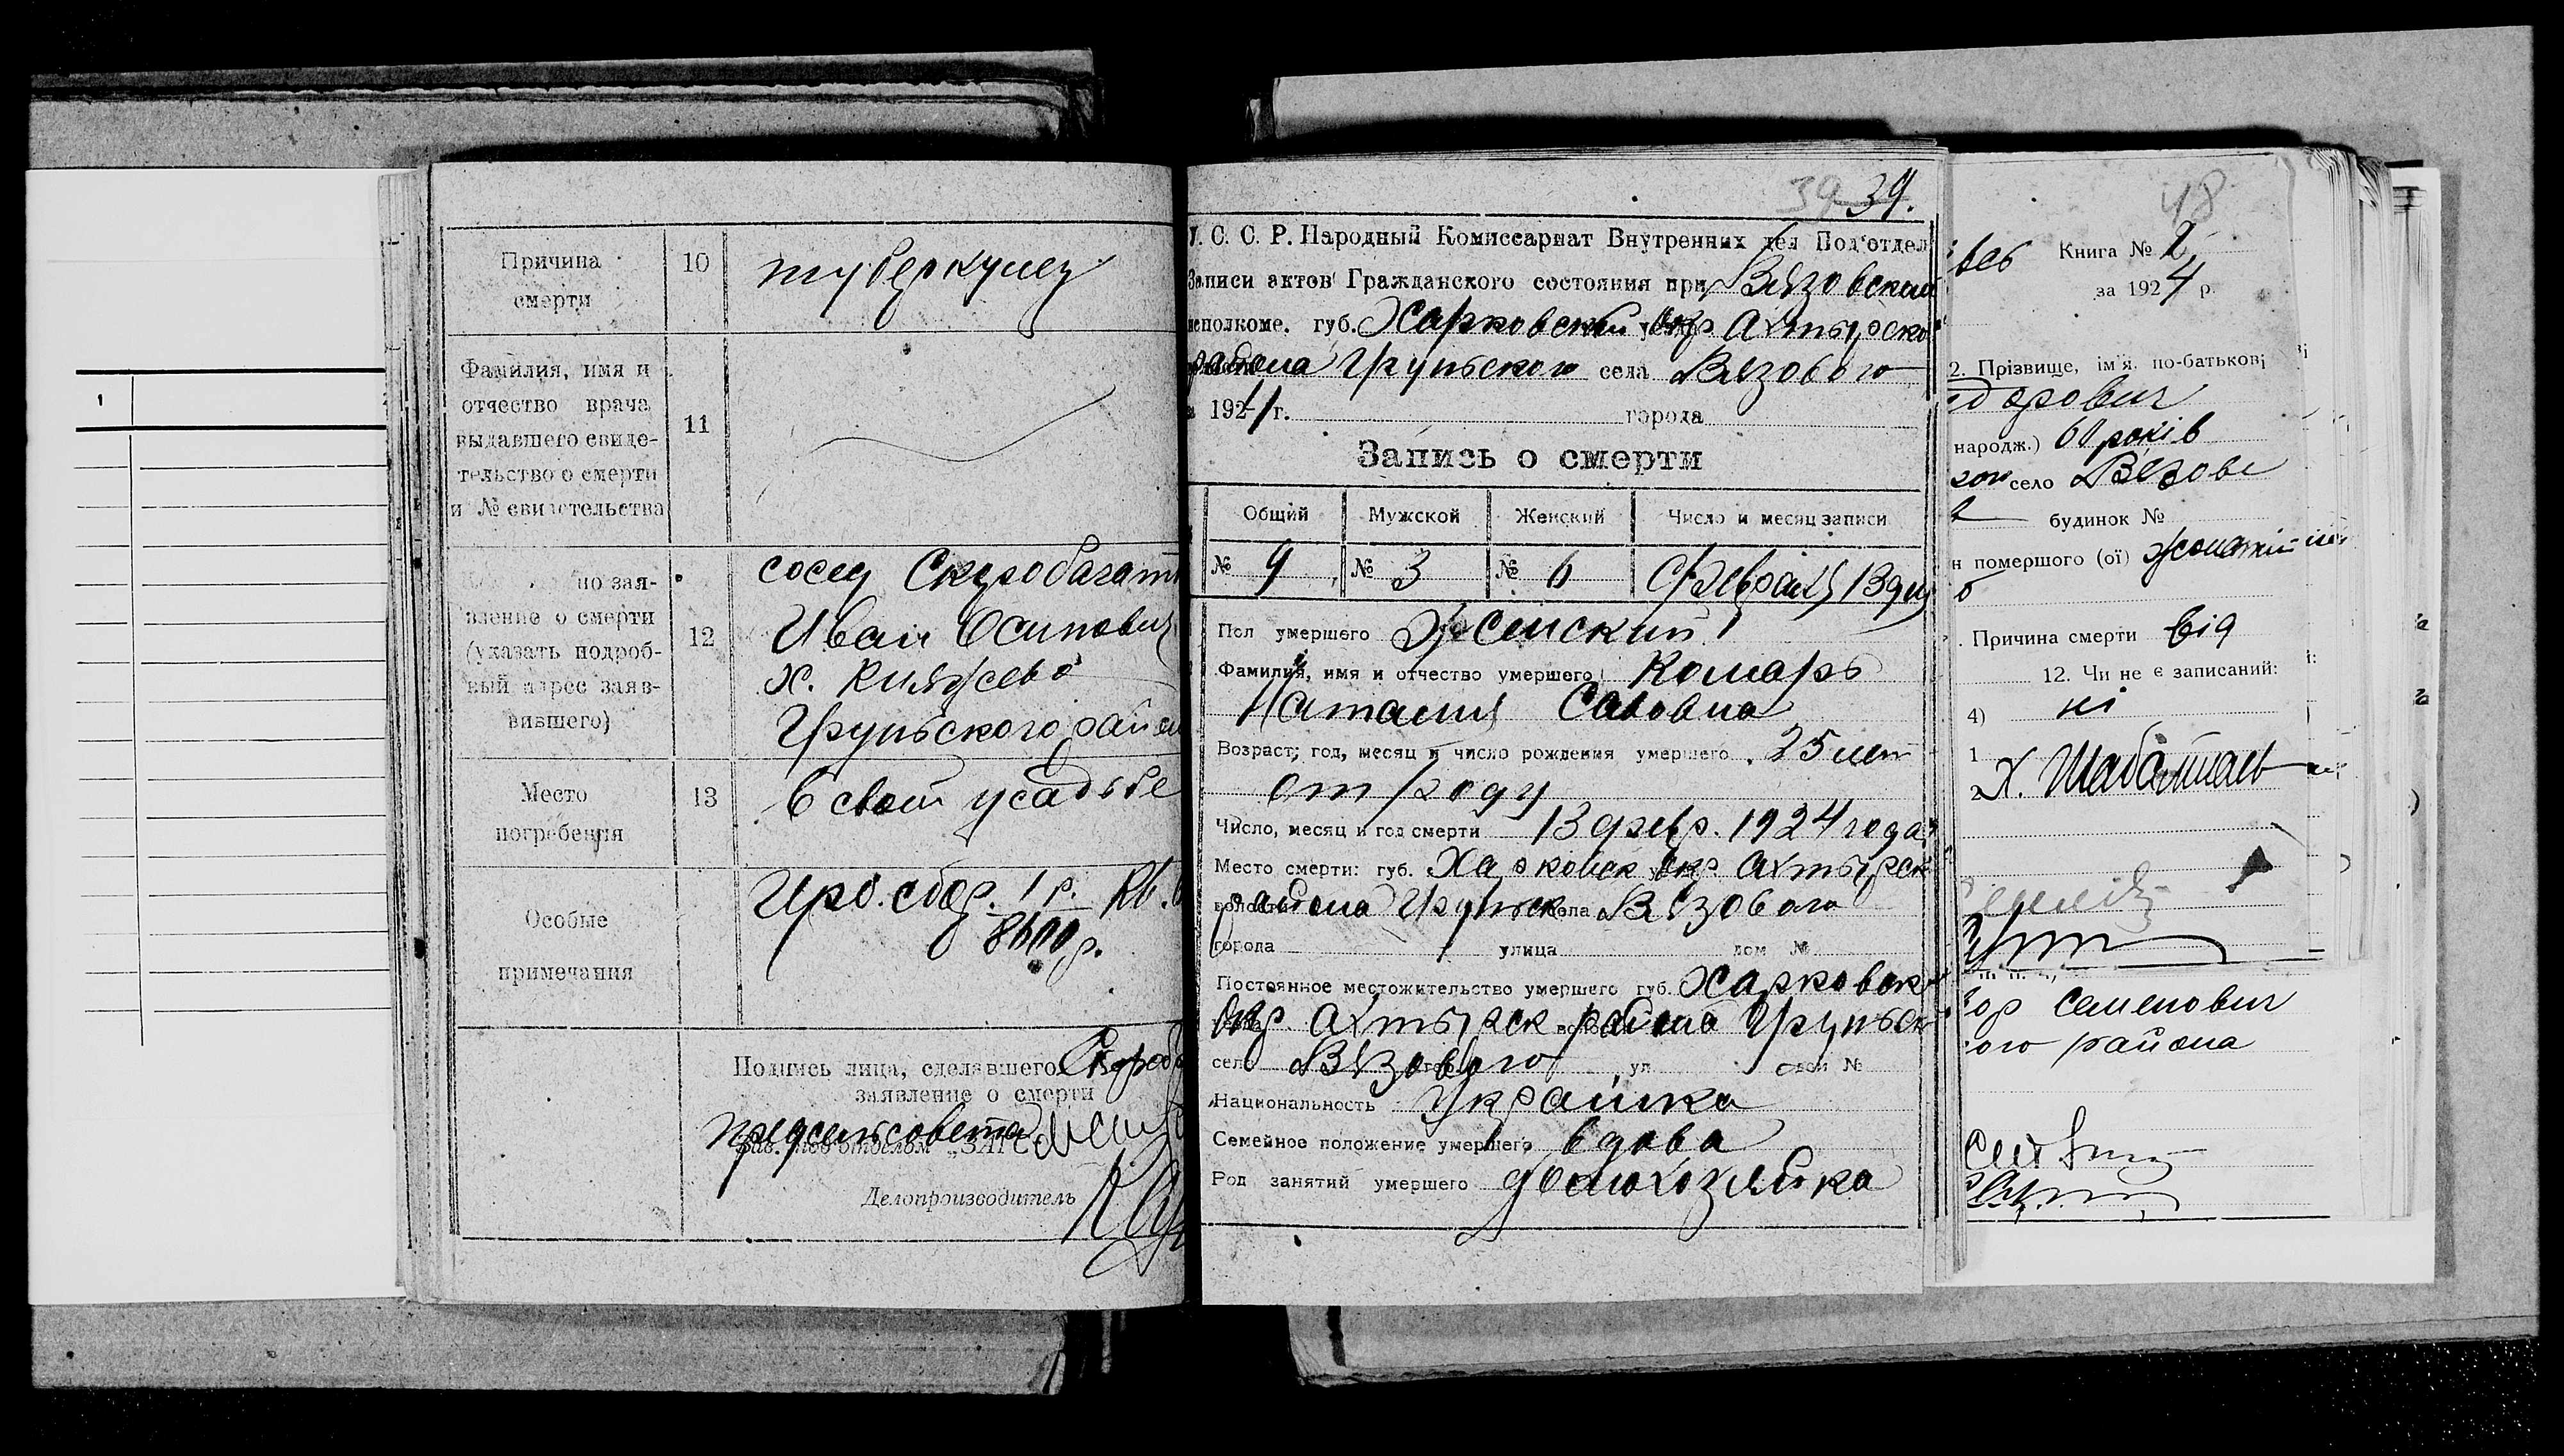 Причина смерти 10 туберкулез
Фамилия, имя и
отчество врача
выдавшего свиде-
тельство о смерти
и № свидетельства
11
но зая-
вление о смерти
(указать подроб-
ный адрес заяв-
вившего)
12
сосед Скуробагат
Иван Осипович
х. Княжево
Груньского район
Место
погребения
13
в своей усадьбе
Особые
примечания
сбор. 1 р.
8600 р.
Подпись лица, сделавшего
заявление о смерти
предсельсовета
Делопроизводитель
39 39.
У. С. С. Р. Народный Комиссариат Внутренних дел Под'отдел
Записи актов Гражданского состояния при Вязовский
исполкоме. губ. Харковский окр Ахтырско
района Груньского села Вязового
в 1924 г. города
Запись о смерти
Общий Мужской Женский Число и месяц записи
№ 9 № 3 № 6 Февраля 13 дня
Пол умершего Женский
Фамилия, имя и отчество умершего Комарь
Наталия Савовна
Возраст; год, месяц и число рождения умершего 25 лет
от роду
Число, месяц и год смерти 13 февр. 1924 года
Место смерти: губ. Харковск окр Ахтырск
района Груньск села Вязового
города улица дом №
Постоянное местожительство умершего губ. Харковск
окр Ахтырск района Груньск
село Вязового ул. №
Национальность Украинка
Семейное положение умершего вдова
Род занятий умершего домохозяйка
48
Книга № 2
за 1924 р.
2. Прізвище, ім'я, по-батькові
дорович
народж.) 60 років
село Вязове
будинок №
н помершого (ої)
Причина смерти від
12. Чи не є записаний:
4) ні
1
2
ор Семенович
ого района